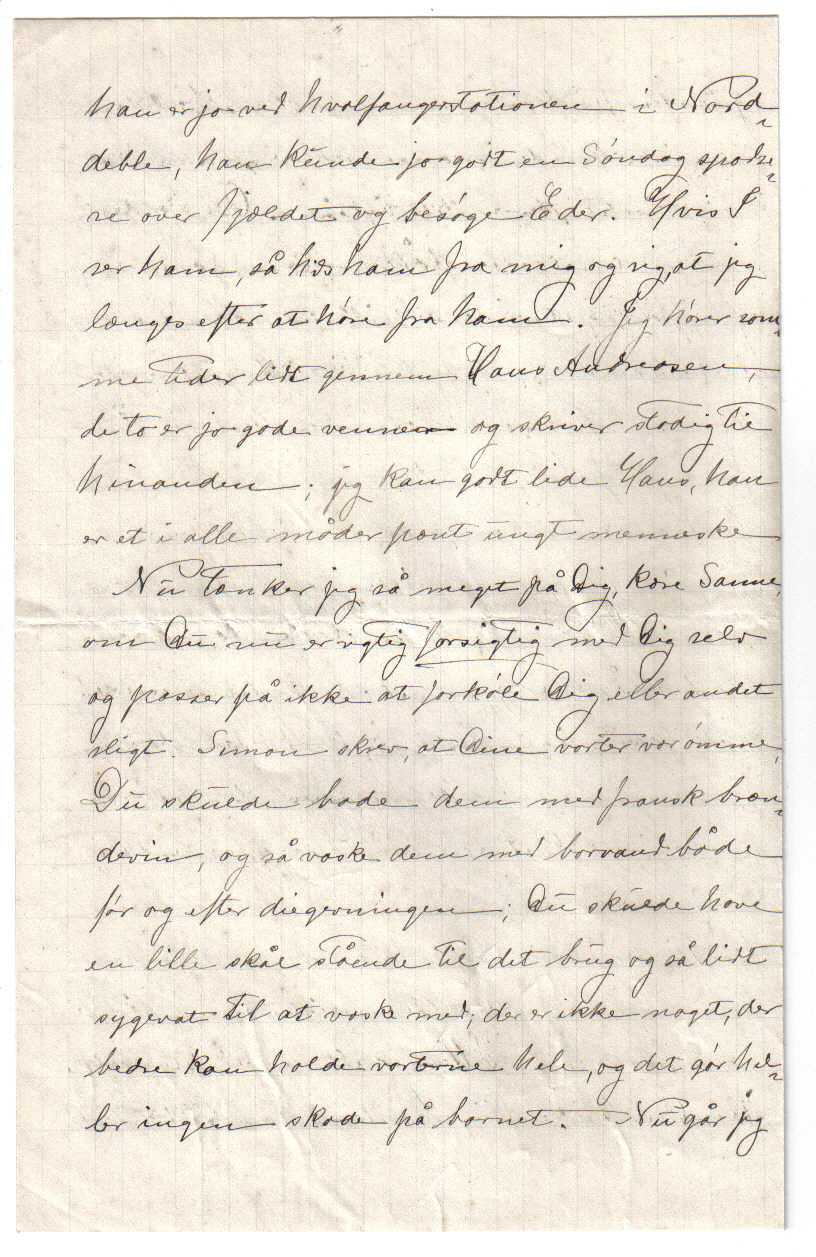 han er jo ved hvalfangerstationen i Nord-
deble, han kunde jo godt en Søndag spadse-
re over fjældet og besøge Eder. Hvis I
ser ham, så hils ham fra mig og sig, at jeg
længes efter at høre fra ham. Jeg hører som-
me tider lidt gennem Hans Andreasen,
de to er jo gode venner og skriver stadig til
hinanden; jeg kan godt lide Hans, han
er et i alle måder pænt ungt menneske
Nu tænker jeg så meget på Dig, kære Sanne,
om Du nu er rigtig forsigtig med Dig selv
og passer på ikke at forkøle Dig eller andet
sligt. Simon skrev, at Dine vorter var ømme,
Du skulde bade dem med fransk bræn-
devin, og så vaske dem med borvand både
før og efter diegivningen; Du skulde have
en lille skål stående til det brug og så lidt
sygevat til at vaske med; der er ikke noget, der
bedre kan holde vorterne hele, og det gør hel-
ler ingen skade på barnet. Nu går jeg